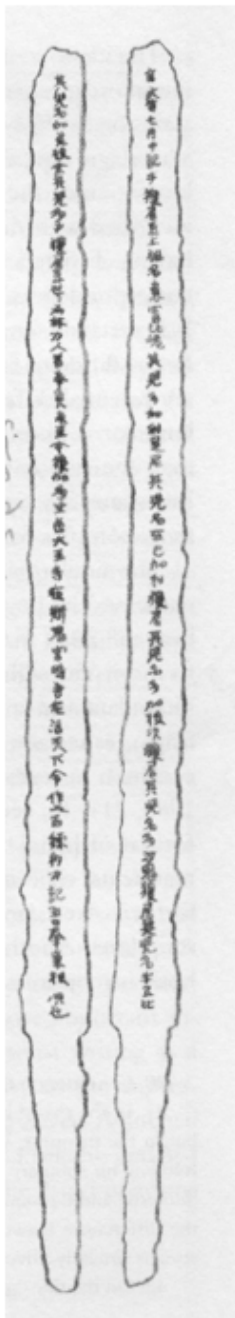 辛亥年七月中記乎獲居臣上祖名意富比垝其児多加利足尼其児名弖已加利獲居其児名多加披次獲居其児名多沙鬼獲居其児名半弖比
其児名加差披余其児名乎獲居臣世々為杖刀人首奉事来至今獲加多支鹵大王寺在斯鬼宮時吾左治天下令作此百練利刀記吾奉事根原也